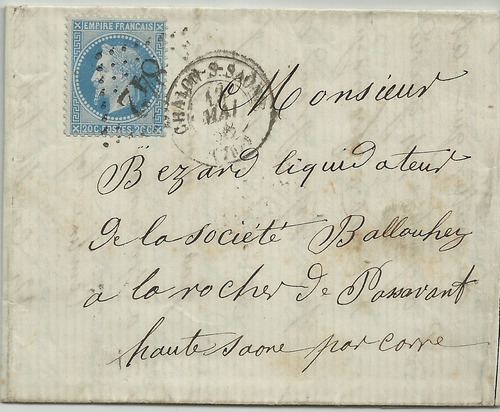 EMPIRE FRANÇAIS
20 C POSTES 20 C
842
CHALON-S-SAÔNE
12
MAI
(70)
Monsieur
Bezard liquidateur
de la société Ballouhey
a la rocher de Passavant
haute saone par corre